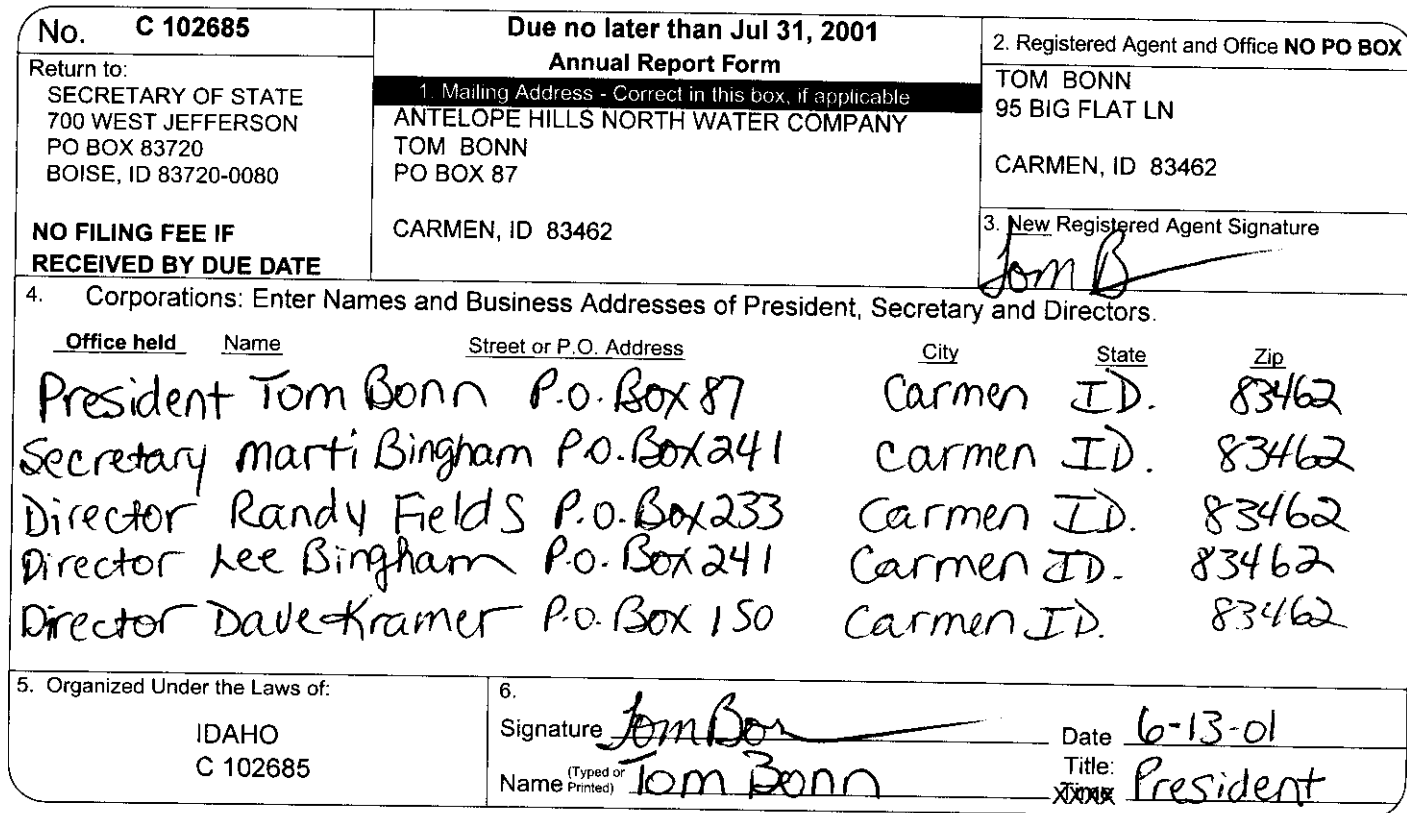 No. C 102685
Return to:
SECRETARY OF STATE
700 WEST JEFFERSON
PO BOX 83720
BOISE, ID 83720-0080
NO FILING FEE IF
RECEIVED BY DUE DATE
Due no later than Jul 31, 2001
Annual Report Form
1. Mailing Address - Correct in this box, if applicable
ANTELOPE HILLS NORTH WATER COMPANY
TOM BONN
PO BOX 87
CARMEN, ID 83462
2. Registered Agent and Office NO PO BOX
TOM BONN
95 BIG FLAT LN
CARMEN, ID 83462
3. New Registered Agent Signature
Tom B
4. Corporations: Enter Names and Business Addresses of President, Secretary and Directors.
Office held Name Street or P.O. Address City State Zip
President Tom Bonn P.O. Box 87 Carmen ID. 83462
Secretary Marti Bingham P.O. Box 241 Carmen ID. 83462
Director Randy Fields P.O. Box 233 Carmen ID. 83462
Director Lee Bingham P.O. Box 241 Carmen ID. 83462
Director Dave Kramer P.O. Box 150 Carmen ID. 83462
5. Organized Under the Laws of:
IDAHO
C 102685
6.
Signature Tom Bon Date 6-13-01
Name (Typed or Printed) Tom Bonn Title: President